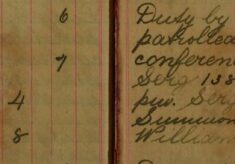 6
7
4
8
Duty by
patrolled
conferen
Serg 138
pw. Serg
Summon
William